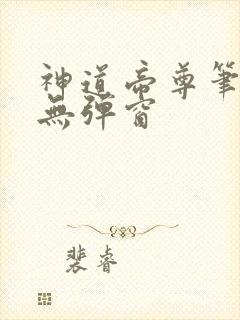 神道帝尊筆
無彈窗
裴睿